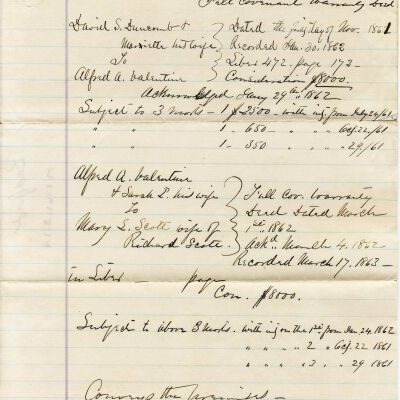 Full Covenant Warranty Deed
David S. Duncomb & Dated the first day of Nov. 1861
Marietta his wife Recorded Jan. 30. 1862
To Liber 472. page 173 -
Alfred A. Valentine Consideration $8000.
Acknowledged Jany 29th 1862
Subject to 3 morts - 1 $2500 - with inj. from July 24/61
" " 1 - 650 - " " Oct. 22/61
" " 1 - 350 " " " 29/61
Alfred A. Valentine
& Sarah L. his wife Full Cov. Warranty
To Deed Dated March
Mary L. Scott wife of 1st. 1862
Richard Scott Ackd. March 4. 1862
Recorded March 17. 1863 -
in Liber - page
Con. $8000.
Subject to above 3 morts. with inj on the 1st from Jan 24. 1862
" " " 2 " Oct. 22 1861
" " " 3 " 29 1861
Conveys the premises -